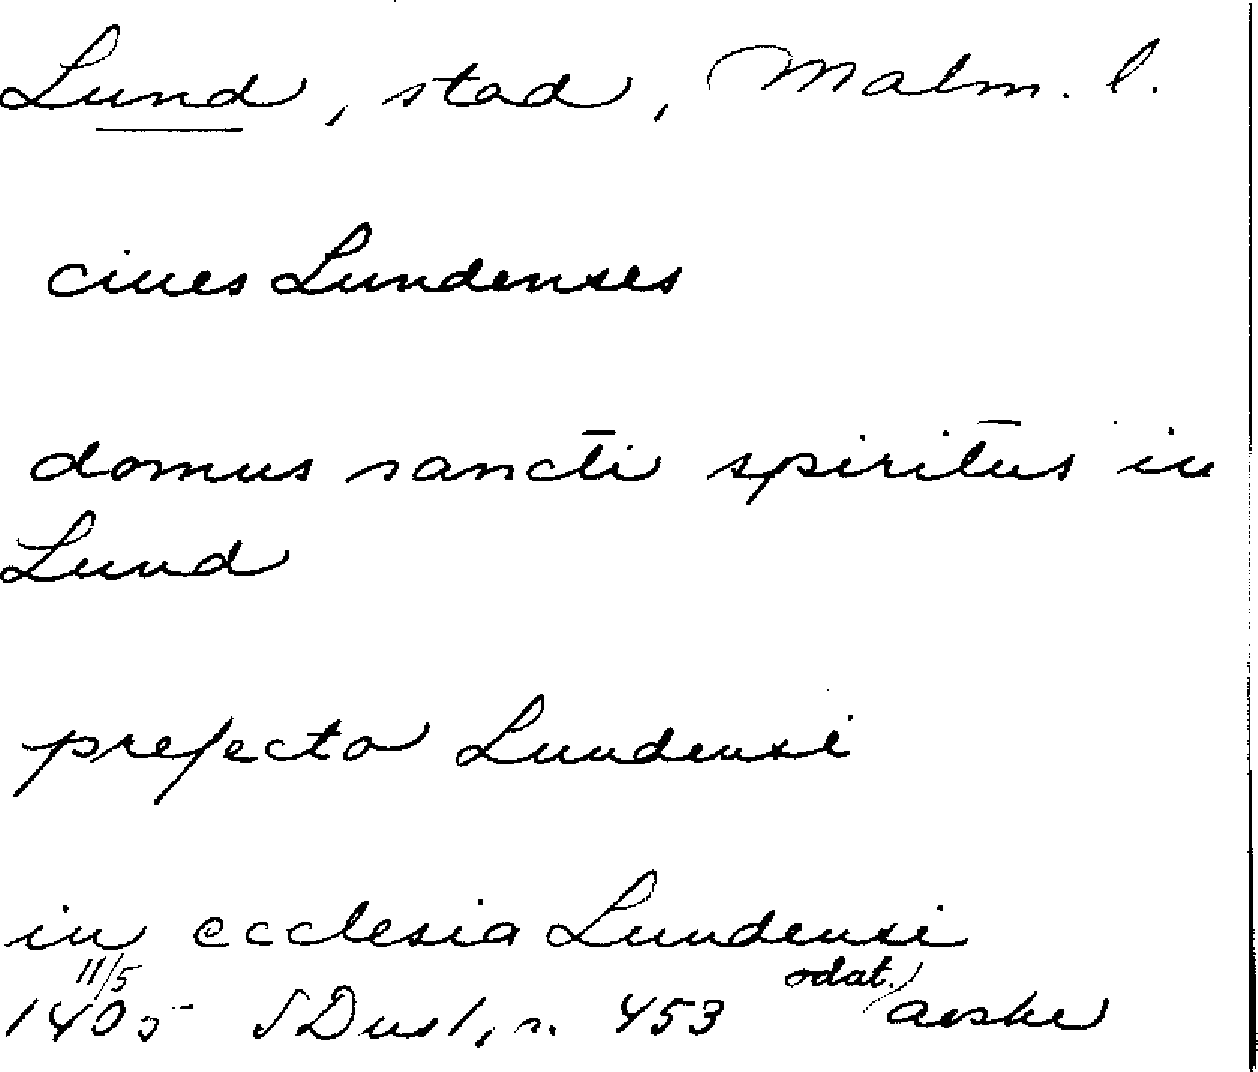 Lund, stad, Malm. l.
ciues Lundenses
domus sancti spiritus in
Lund
prefecto Lundensi
in ecclesia Lundensi
11/5 odat.
1405 SDns 1, n. 453 avskr